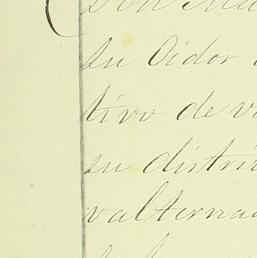 su Oidor
tivo de v
su distri
valterna